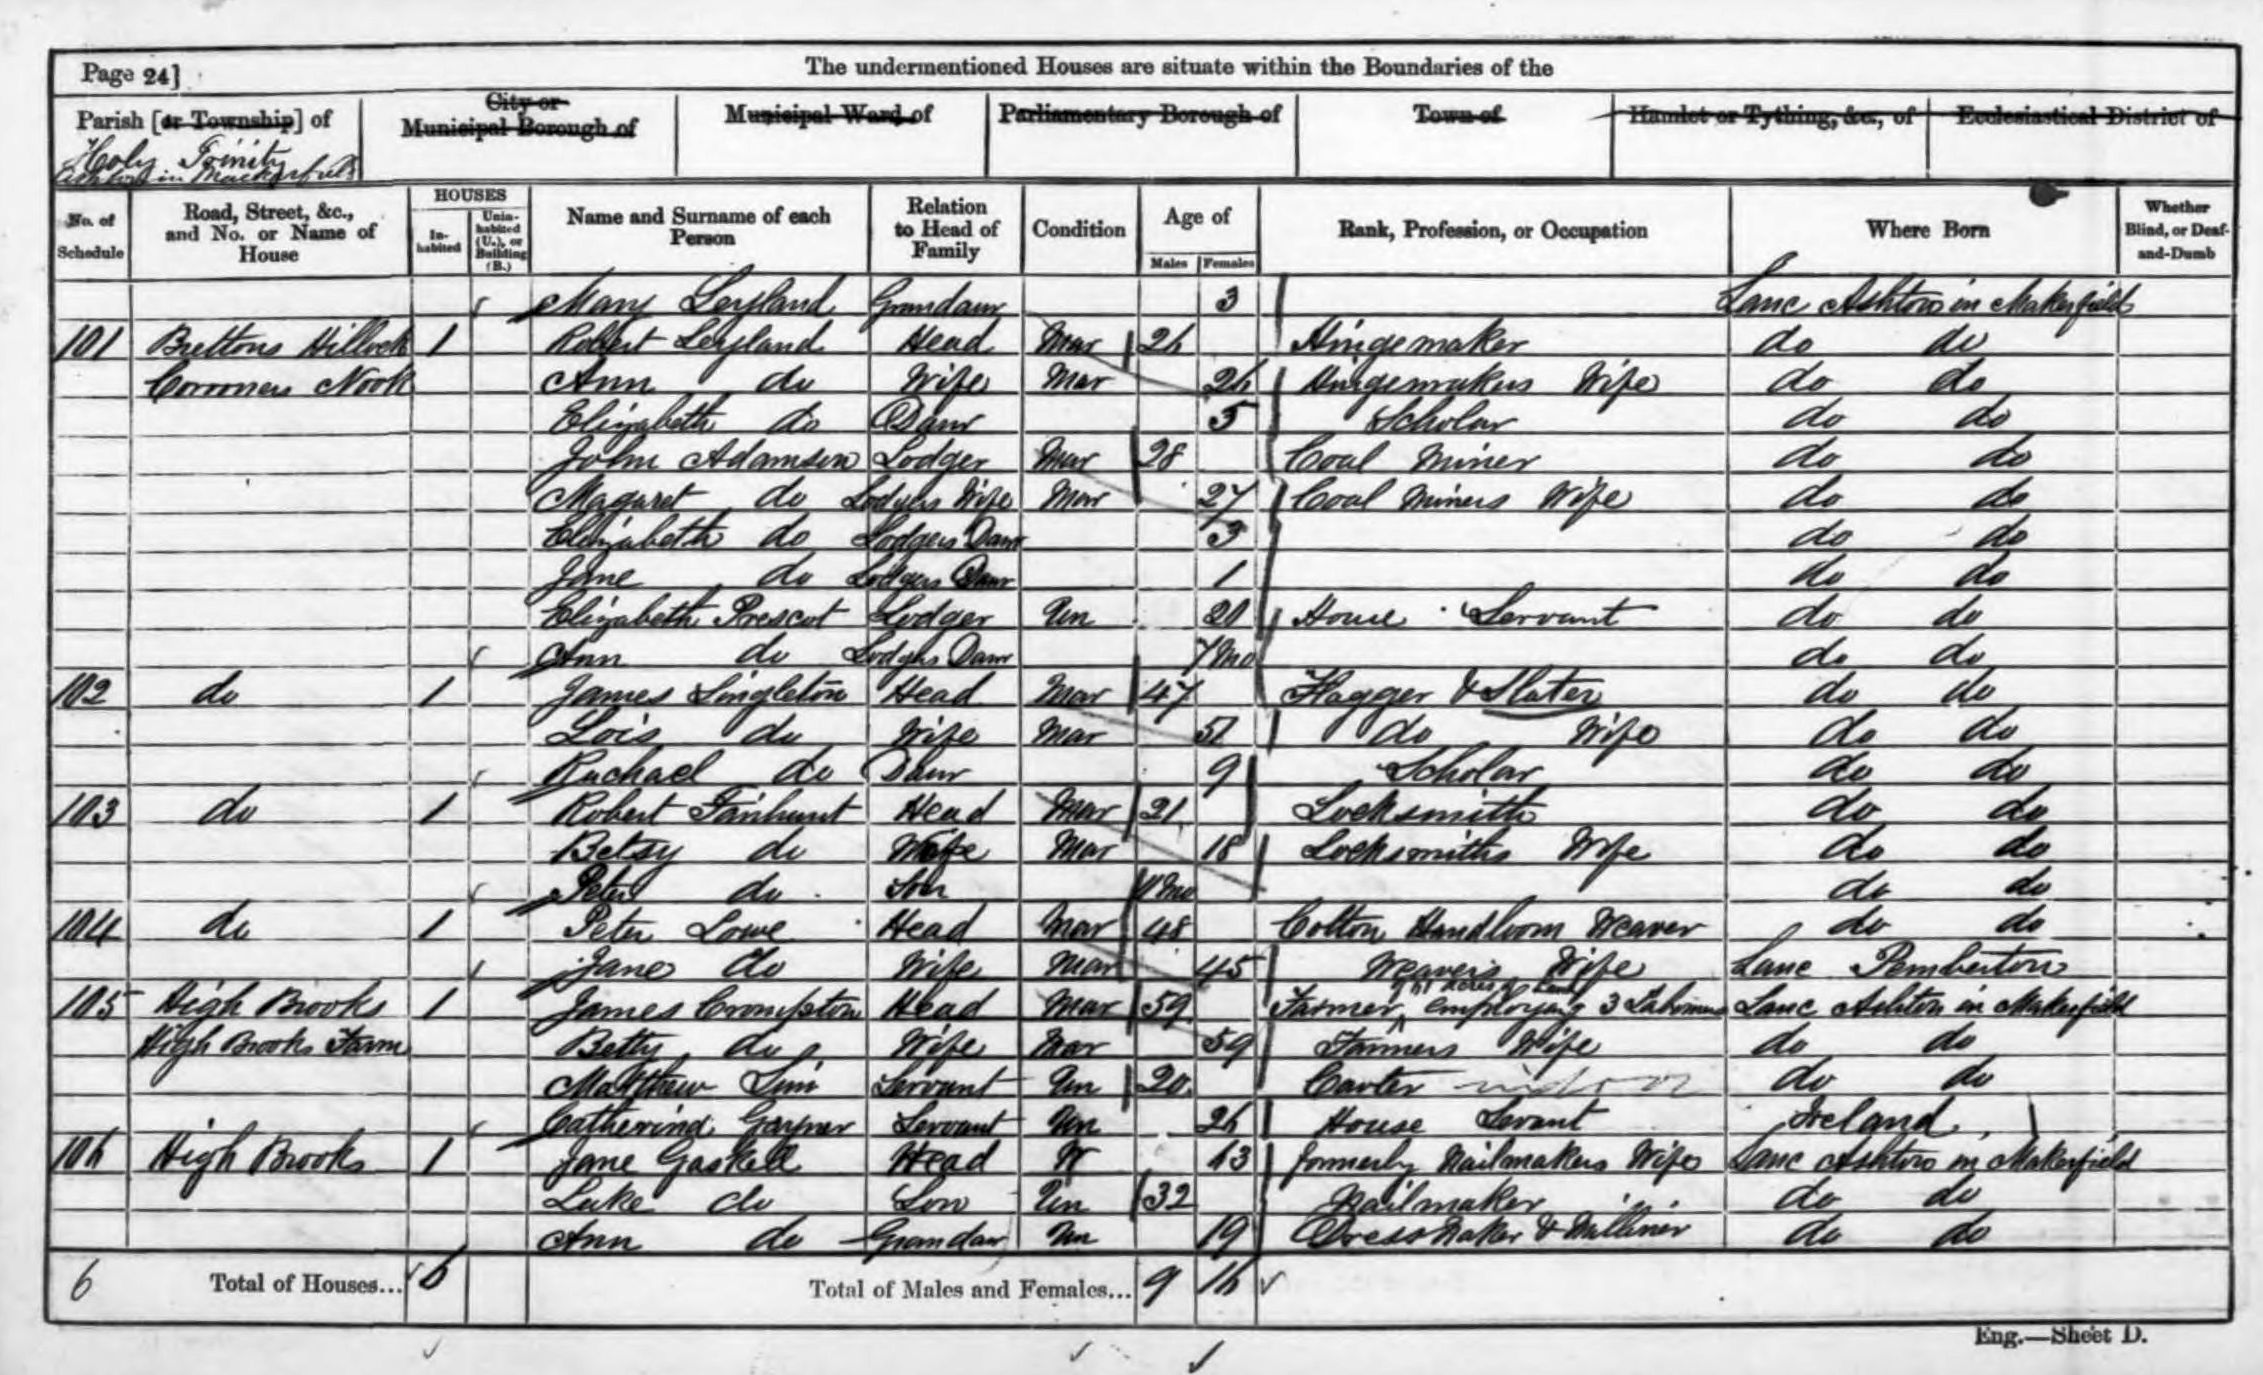 Page 24]
The undermentioned Houses are situate within the Boundaries of the
Parish [or Township] of
City or Municipal Borough of
Municipal Ward of
Parliamentary Borough of
Town of
Hamlet or Tything, &c., of
Ecclesiastical District of
Holy Trinity
Ashton in Mackerfield
No. of Schedule
Road, Street, &c., and No. or Name of House
HOUSES
In-habited
Unin-habited (U.), or Building (B.)
Name and Surname of each Person
Relation to Head of Family
Condition
Age of
Males
Females
Rank, Profession, or Occupation
Where Born
Whether Blind, or Deaf-and-Dumb
Mary Leyland Grandaur 3 Lanc Ashton in Makerfield
101 Brettons Hillock 1 Robert Leyland Head Mar 26 Hingemaker do do
Nook Ann do Wife Mar 26 Hingemakers Wife do do
Elizabeth do Daur 5 Scholar do do
John Adamson Lodger Mar 28 Coal Miner do do
Magaret do Lodgers Wife Mar 27 Coal Miners Wife do do
Elizabeth do Lodgers Daur 3 do do
Jane do Lodgers Daur 1 do do
Elizabeth Prescot Lodger Un House Servant do do
Ann do Lodgers Daur 7 Mo do do
102 do 1 James Singleton Head Mar 47 Flagger & Slater do do
Lois do Wife Mar 51 do Wife do do
Rachael do Daur 9 Scholar do do
103 do 1 Robert Fairhurst Head Mar 21 Locksmith do do
Betsy do Wife Mar 18 Locksmiths Wife do do
Peter do Son Mo do do
104 do 1 Peter Lowe Head Mar 48 Cotton Handloom Weaver do do
Jane do Wife Mar 45 Weavers Wife Lanc Pemberton
105 High Brooks 1 James Crompton Head Mar 59 Farmer acres of Land employing 3 Labourers Lanc Ashton in Makerfield
High Brooks Farm Betty do Wife Mar 59 Farmers Wife do do
Matthew Sim Servant Un 20 Carter indoor do do
Catherine Servant Un 26 House Servant Ireland
106 High Brooks 1 Jane Gaskell Head W formerly Nailmakers Wife Lanc Ashton in Makerfield
Luke do Son Un 32 Nailmaker do do
Ann do Grandaur Un 19 Dress Maker & Milliner do do
6 Total of Houses... 6 Total of Males and Females... 9 16
Eng.—Sheet D.